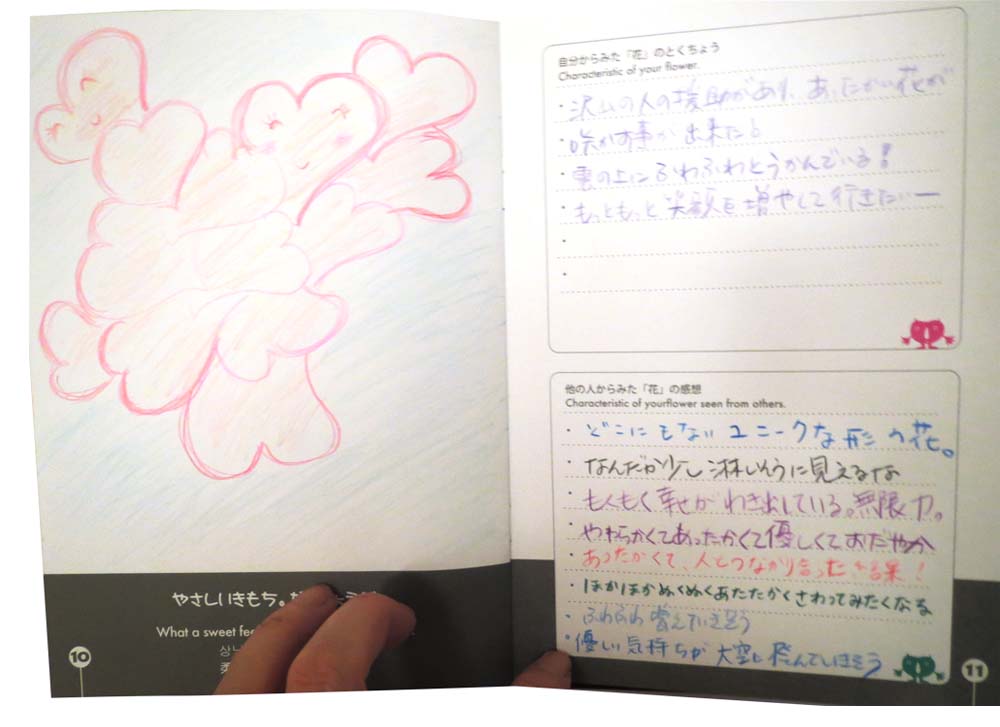 やさしいきもち。
What a sweet fee
10
自分からみた「花」のとくちょう
Characteristic of your flower.
・沢山の人の援助があり、あったかい花が
・咲かす事が出来た。
・雲の上にふわふわとうかんでいる!
・もっともっと笑顔を増やして行きたいー
・
・
他の人からみた「花」の感想
Characteristic of yourflower seen from others.
・どこにもないユニークな形の花。
・なんだか少し淋しそうに見えるな
・もくもく幸せがわき出している。無限力。
・やわらかくてあったかくて優しくておだやか
・あったかくて、人とつながり合った結果!
・ほかほかぬくぬくあたたかくさわってみたくなる
・ふわふわ
・優しい気持ちが大空に飛んでいきそう
11